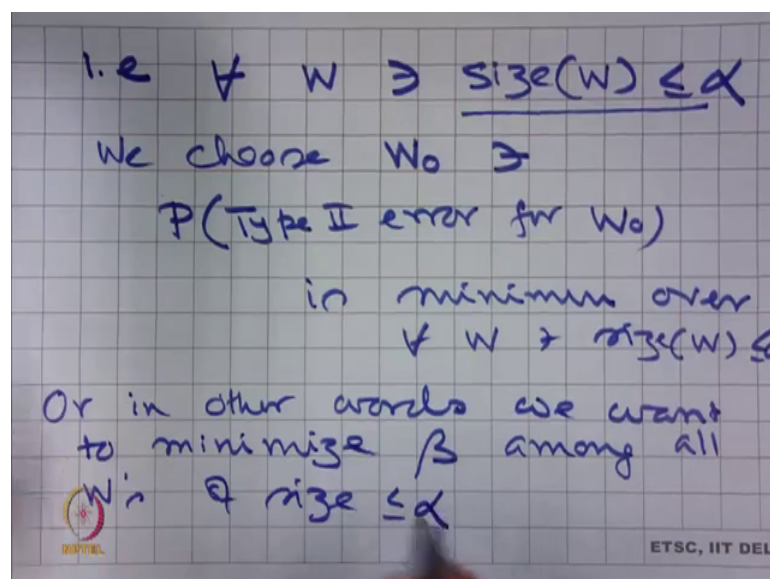 i.e ∀ W ∋ size(W) ≤ α
We choose W₀ ∋
P(Type II error for W₀)
is minimum over
∀ W ∋ size(W) ≤
Or in other words we want
to minimize β among all
W's of size ≤ α
NPTEL
ETSC, IIT DEL